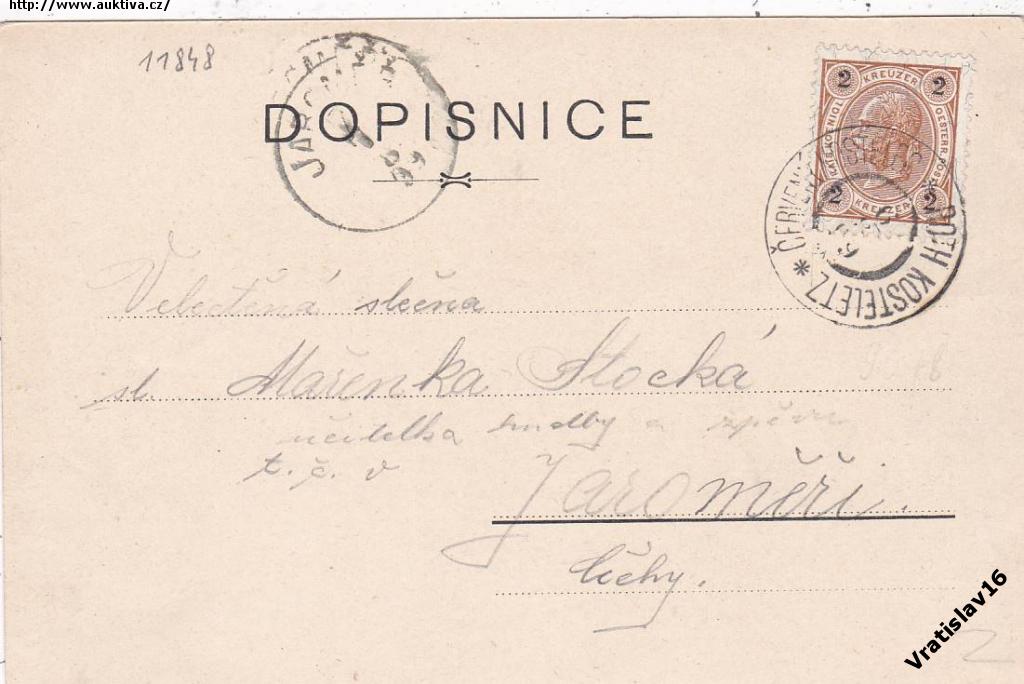 http://www.auktiva.cz/
11848
DOPISNICE
JAROMĚŘ
2 KREUZER 2
KAIS. KÖNIGL. OESTERR. POST
2 KREUZER 2
* ČERVENÝ KOSTELEC * ROTH KOSTELETZ
Velectěná slečna
sl. Mařenka Stocká
učitelka hudby a zpěvu
t. č. v
Jaroměři.
Čechy.
Vratislav16